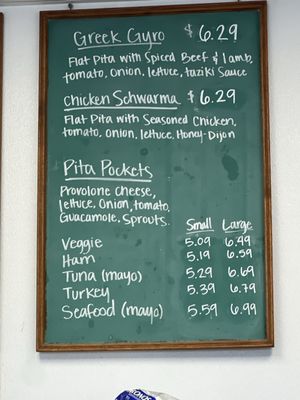 Greek Gyro $6.29
Flat Pita with Spiced Beef & lamb,
tomato, onion, lettuce, taziki Sauce
Chicken Schwarma $6.29
Flat Pita with Seasoned Chicken,
tomato, onion, lettuce, Honey-Dijon
Pita Pockets
Provolone Cheese,
lettuce, Onion, tomato,
Guacamole, Sprouts.
Small Large
Veggie 5.09 6.49
Ham 5.19 6.59
Tuna (mayo) 5.29 6.69
Turkey 5.39 6.79
Seafood (mayo) 5.59 6.99